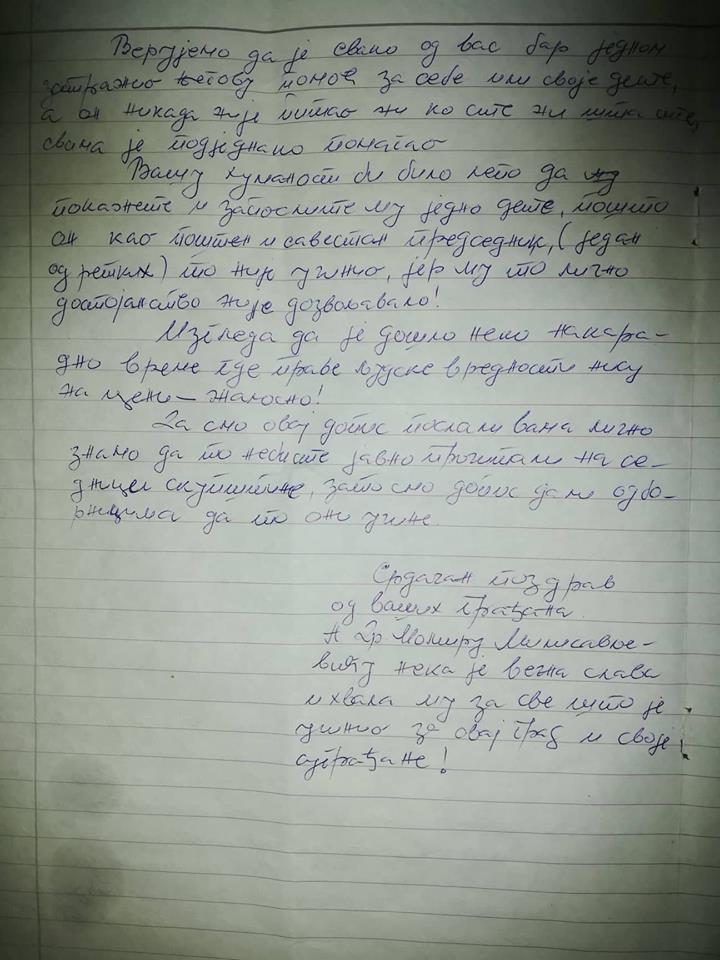 Верујемо да је свако од вас бар једном
затражио његову помоћ за себе или своје дете,
а он никада није питао ни ко сте ни шта сте,
свима је подједнако помагао
Вашу хуманост би било лепо да
покажете и запослите му једно дете, пошто
он као поштен и савестан председник, (један
од ретких) то није учинио, јер му то лично
достојанство није дозвољавало!
Изгледа да је дошло неко накара-
дно време где праве људске вредности нису
на цени – жалосно!
Да смо овај допис послали вама лично
знамо да то не бисте јавно прочитали на се-
дници скупштине, зато смо допис дали одбо-
рницима да то они учине.
Срдачан поздрав
од ваших грађана
А Др Момиру Милисавље-
вићу нека је вечна слава
и хвала му за све што је
учинио за овај град и своје
суграђане!